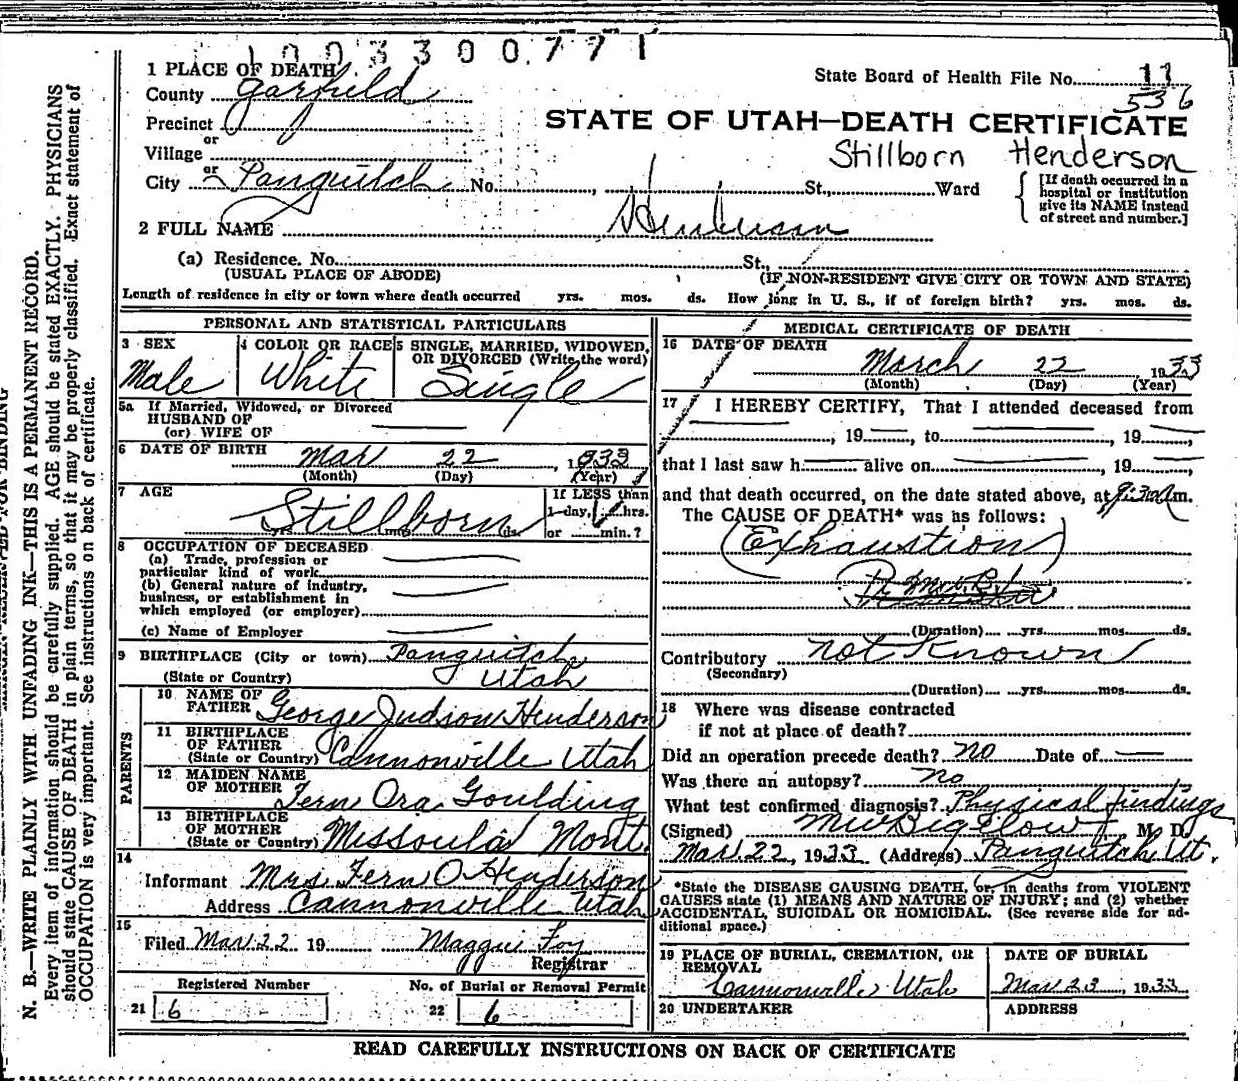 1003300771
1 PLACE OF DEATH
State Board of Health File No. 11
County Garfield
536
Precinct
or
STATE OF UTAH—DEATH CERTIFICATE
Village
Stillborn Henderson
or
City Panguitch No. , St., Ward
[If death occurred in a
hospital or institution
give its NAME instead
of street and number.]
2 FULL NAME Henderson
(a) Residence. No. St.,
(USUAL PLACE OF ABODE) (IF NON-RESIDENT GIVE CITY OR TOWN AND STATE)
Length of residence in city or town where death occurred yrs. mos. ds. How long in U. S., if of foreign birth? yrs. mos. ds.
PERSONAL AND STATISTICAL PARTICULARS
3 SEX
Male
4 COLOR OR RACE
White
5 SINGLE, MARRIED, WIDOWED,
OR DIVORCED (Write the word)
Single
5a If Married, Widowed, or Divorced
HUSBAND OF
(or) WIFE OF
6 DATE OF BIRTH
Mar 22, 1933
(Month) (Day) (Year)
7 AGE
Stillborn
yrs. mos. ds.
If LESS than
1 day, hrs.
or min.?
8 OCCUPATION OF DECEASED
(a) Trade, profession or
particular kind of work
(b) General nature of industry,
business, or establishment in
which employed (or employer)
(c) Name of Employer
9 BIRTHPLACE (City or town) Panguitch
(State or Country) Utah
PARENTS
10 NAME OF
FATHER George Judson Henderson
11 BIRTHPLACE
OF FATHER
(State or Country) Cannonville Utah
12 MAIDEN NAME
OF MOTHER Fern Ora Goulding
13 BIRTHPLACE
OF MOTHER
(State or Country) Missoula Mont.
14
Informant Mrs. Fern O Henderson
Address Cannonville Utah
15
Filed Mar 22 19 Maggie Foy
Registrar
Registered Number No. of Burial or Removal Permit
21 6 22 6
MEDICAL CERTIFICATE OF DEATH
16 DATE OF DEATH
March 22, 1933
(Month) (Day) (Year)
17 I HEREBY CERTIFY, That I attended deceased from
, 19 , to , 19 ,
that I last saw h alive on , 19 ,
and that death occurred, on the date stated above, at 9:30 a m.
The CAUSE OF DEATH* was as follows:
(Exhaustion)
(Duration) yrs. mos. ds.
Contributory not Known
(Secondary)
(Duration) yrs. mos. ds.
18 Where was disease contracted
if not at place of death?
Did an operation precede death? no Date of
Was there an autopsy? no
What test confirmed diagnosis? Physical findings
(Signed) M W Bigelow M. D.
Mar. 22, 1933 (Address) Panguitch Ut.
*State the DISEASE CAUSING DEATH, or, in deaths from VIOLENT
CAUSES state (1) MEANS AND NATURE OF INJURY; and (2) whether
ACCIDENTAL, SUICIDAL OR HOMICIDAL. (See reverse side for ad-
ditional space.)
19 PLACE OF BURIAL, CREMATION, OR
REMOVAL
Cannonville Utah
DATE OF BURIAL
Mar 23, 1933
20 UNDERTAKER
ADDRESS
READ CAREFULLY INSTRUCTIONS ON BACK OF CERTIFICATE
N. B.—WRITE PLAINLY WITH UNFADING INK—THIS IS A PERMANENT RECORD.
Every item of information should be carefully supplied. AGE should be stated EXACTLY. PHYSICIANS
should state CAUSE OF DEATH in plain terms, so that it may be properly classified. Exact statement of
OCCUPATION is very important. See instructions on back of certificate.